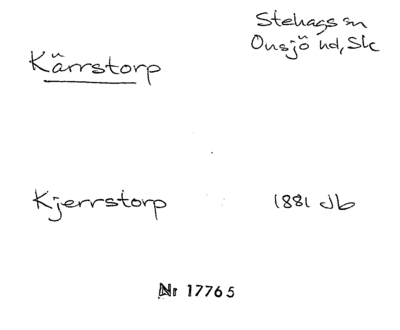 Stehags sn
Onsjö hd, Sk
Kärrstorp
Kjerrstorp
1881 Jb
Nr 17765